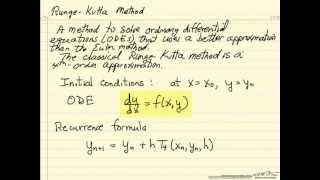 Runge-Kutta Method
A method to solve ordinary differential
equations (ODEs), that uses a better approximation
than the Euler method.
The classical Runge-Kutta method is a
order approximation.
Initial conditions: at x = x₀, y = y₀
ODE dy/dx = f(x,y)
Recurrence formula
yₙ₊₁ = yₙ + h T₄(xₙ, yₙ, h)